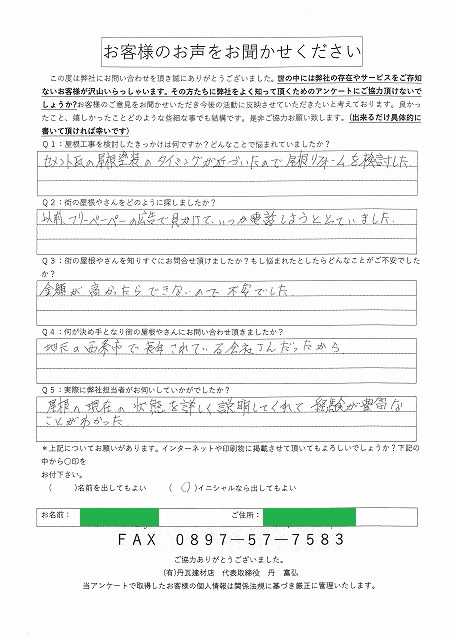 お客様のお声をお聞かせください
この度は弊社にお問い合わせを頂き誠にありがとうございました。世の中には弊社の存在やサービスをご存知
ないお客様が沢山いらっしゃいます。その方たちに弊社をよく知って頂くためのアンケートにご協力頂けないで
しょうか?お客様のご意見をお聞かせいただき今後の活動に反映させていただきたいと考えております。良かっ
たこと、嬉しかったことどのような些細な事でも結構です。是非ご協力お願い致します。(出来るだけ具体的に
書いて頂ければ幸いです)
Q1:屋根工事を検討したきっかけは何ですか?どんなことで悩まれていましたか?
セメント瓦の屋根塗装のタイミングが近づいたので屋根リフォームを検討した
Q2:街の屋根やさんをどのように探しましたか?
以前、フリーペーパーの広告で見かけて、いつか電話しようととっていました。
Q3:街の屋根やさんを知りすぐにお問合せ頂けましたか?もし悩まれたとしたらどんなことがご不安でした
か?
金額が高かったらできないので不安でした
Q4:何が決め手となり街の屋根やさんにお問い合わせ頂きましたか?
地元の西条市で長年されている会社さんだったから
Q5:実際に弊社担当者がお伺いしていかがでしたか?
屋根の現在の状態を詳しく説明してくれて経験が豊富な
ことがわかった
*上記についてお願いがあります。インターネットや印刷物に掲載させて頂いてもよろしいでしょうか?下記の
中から○印を
お付下さい。
( )名前を出してもよい (○)イニシャルなら出してもよい
お名前: ご住所:
FAX 0897-57-7583
ご協力ありがとうございました。
(有)丹瓦建材店 代表取締役 丹 富弘
当アンケートで取得したお客様の個人情報は関係法規に基づき厳正に管理いたします。